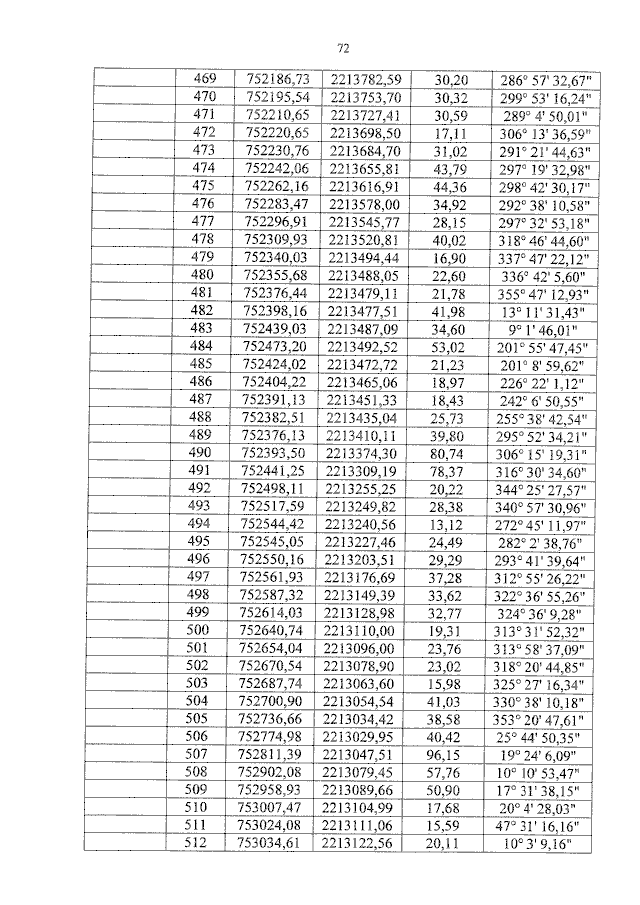 72
469 752186,73 2213782,59 30,20 286° 57' 32,67"
470 752195,54 2213753,70 30,32 299° 53' 16,24"
471 752210,65 2213727,41 30,59 289° 4' 50,01"
472 752220,65 2213698,50 17,11 306° 13' 36,59"
473 752230,76 2213684,70 31,02 291° 21' 44,63"
474 752242,06 2213655,81 43,79 297° 19' 32,98"
475 752262,16 2213616,91 44,36 298° 42' 30,17"
476 752283,47 2213578,00 34,92 292° 38' 10,58"
477 752296,91 2213545,77 28,15 297° 32' 53,18"
478 752309,93 2213520,81 40,02 318° 46' 44,60"
479 752340,03 2213494,44 16,90 337° 47' 22,12"
480 752355,68 2213488,05 22,60 336° 42' 5,60"
481 752376,44 2213479,11 21,78 355° 47' 12,93"
482 752398,16 2213477,51 41,98 13° 11' 31,43"
483 752439,03 2213487,09 34,60 9° 1' 46,01"
484 752473,20 2213492,52 53,02 201° 55' 47,45"
485 752424,02 2213472,72 21,23 201° 8' 59,62"
486 752404,22 2213465,06 18,97 226° 22' 1,12"
487 752391,13 2213451,33 18,43 242° 6' 50,55"
488 752382,51 2213435,04 25,73 255° 38' 42,54"
489 752376,13 2213410,11 39,80 295° 52' 34,21"
490 752393,50 2213374,30 80,74 306° 15' 19,31"
491 752441,25 2213309,19 78,37 316° 30' 34,60"
492 752498,11 2213255,25 20,22 344° 25' 27,57"
493 752517,59 2213249,82 28,38 340° 57' 30,96"
494 752544,42 2213240,56 13,12 272° 45' 11,97"
495 752545,05 2213227,46 24,49 282° 2' 38,76"
496 752550,16 2213203,51 29,29 293° 41' 39,64"
497 752561,93 2213176,69 37,28 312° 55' 26,22"
498 752587,32 2213149,39 33,62 322° 36' 55,26"
499 752614,03 2213128,98 32,77 324° 36' 9,28"
500 752640,74 2213110,00 19,31 313° 31' 52,32"
501 752654,04 2213096,00 23,76 313° 58' 37,09"
502 752670,54 2213078,90 23,02 318° 20' 44,85"
503 752687,74 2213063,60 15,98 325° 27' 16,34"
504 752700,90 2213054,54 41,03 330° 38' 10,18"
505 752736,66 2213034,42 38,58 353° 20' 47,61"
506 752774,98 2213029,95 40,42 25° 44' 50,35"
507 752811,39 2213047,51 96,15 19° 24' 6,09"
508 752902,08 2213079,45 57,76 10° 10' 53,47"
509 752958,93 2213089,66 50,90 17° 31' 38,15"
510 753007,47 2213104,99 17,68 20° 4' 28,03"
511 753024,08 2213111,06 15,59 47° 31' 16,16"
512 753034,61 2213122,56 20,11 10° 3' 9,16"